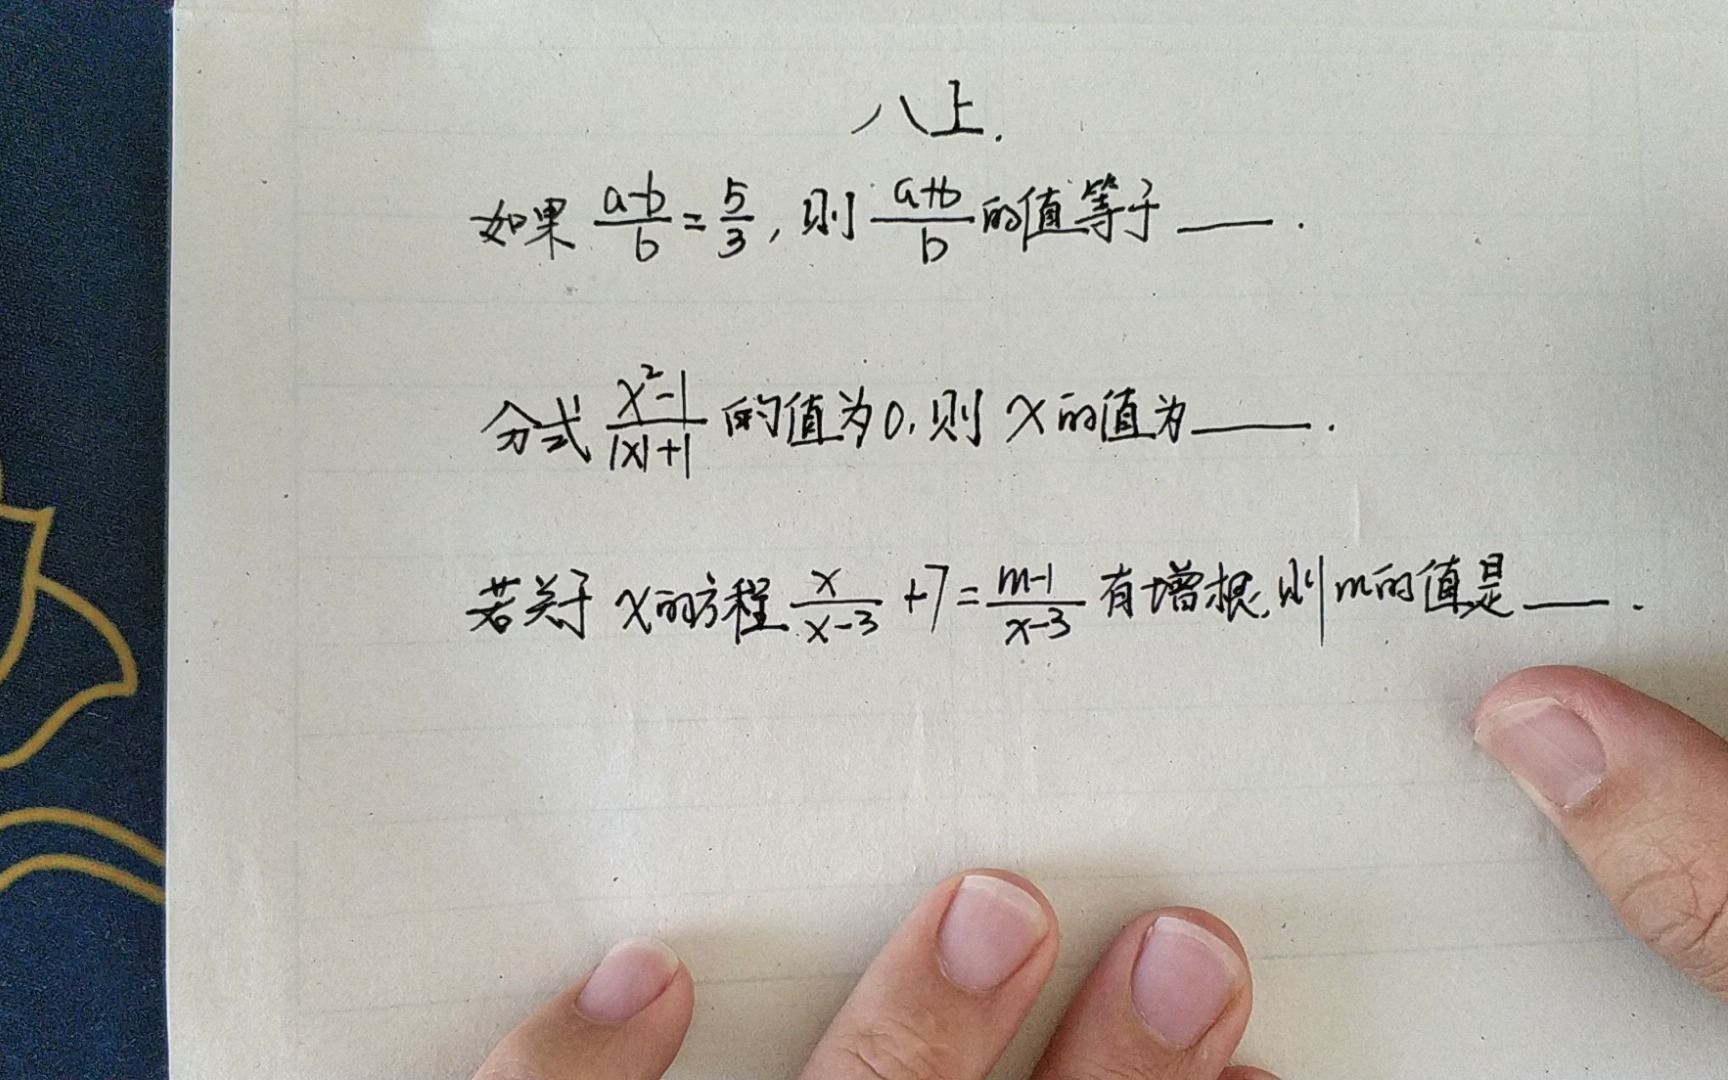 八上.
如果 (a-b)/b = 5/3, 则 (a+b)/b 的值等于 ___.
分式 (x²-1)/(|x|+1) 的值为0, 则 x 的值为 ___.
若关于 x 的方程 x/(x-3) +7 = (m-1)/(x-3) 有增根, 则 m 的值是 ___.